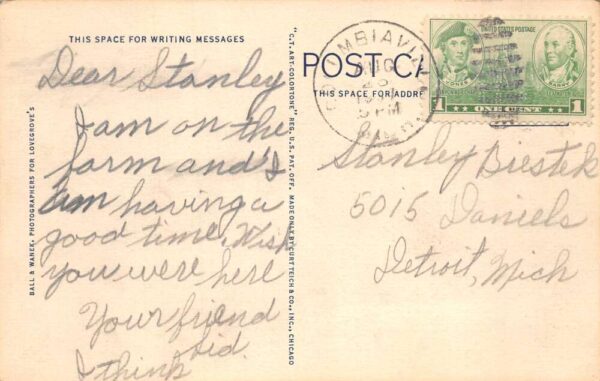 THIS SPACE FOR WRITING MESSAGES
Dear Stanley
I am on the
farm and I
am having a
good time. Wish
you were here
Your friend
Sid.
I think
BALL & WANEK, PHOTOGRAPHERS FOR LOVEGROVE'S
"C.T. ART-COLORTONE" REG. U.S. PAT. OFF. MADE ONLY BY CURT TEICH & CO., INC., CHICAGO
POST CA
THIS SPACE FOR ADDR
UMBIAVIL
AUG
PM
UNITED STATES POSTAGE
JONES
BARRY
1 ONE CENT 1
Stanley Biestek
5015 Daniels
Detroit, Mich